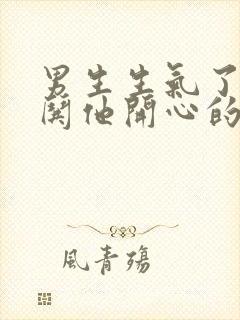 男生生氣了
鬨他開心的
風青殤